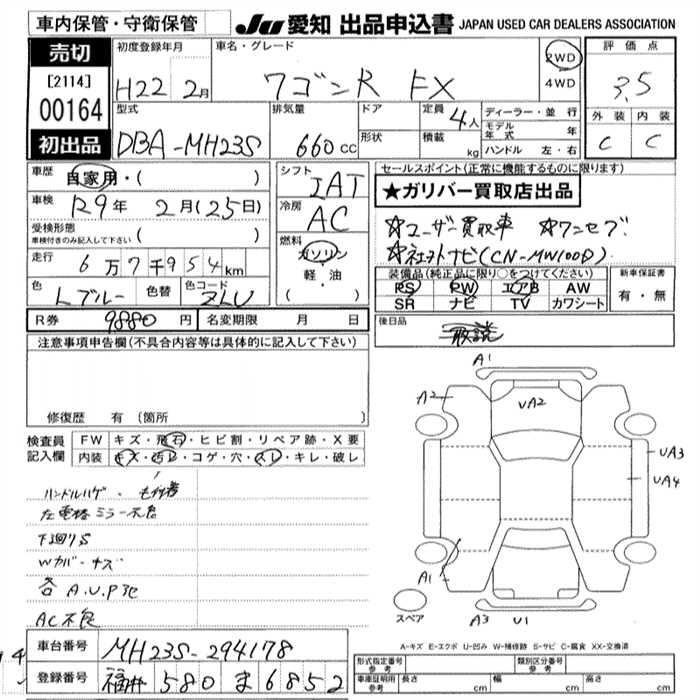 車内保管・守衛保管
JU 愛知 出品申込書 JAPAN USED CAR DEALERS ASSOCIATION
売切
[2114]
00164
初出品
初度登録年月
H22 2月
車名・グレード
ワゴンR FX
2WD
4WD
評価点
3.5
外装 内装
C C
型式
DBA-MH23S
排気量
660cc
ドア
形状
定員 4人
積載 kg
ディーラー・並行
モデル年式 年
ハンドル 左・右
車歴 自家用・( )
車検 R9年 2月(25日)
受検形態
車検付きのみ記入して下さい ( )
走行 6万7千954km
色 Lブルー
色替
色コード ZLU
シフト
IAT
冷房
AC
燃料
ガソリン
軽・油
( )
セールスポイント(正常に機能するものに限ります)
★ガリバー買取店出品
☆ユーザー買取車 ☆ワンセグ
☆社外ナビ(CN-MW100D)
装備品(純正品に限り○をつけてください)
PS PW エアB AW
SR ナビ TV カワシート
新車保証書
有・無
R券 9880円
名変期限 月 日
後日品
取説
注意事項申告欄(不具合内容等は具体的に記入して下さい)
修復歴 有 〔箇所
検査員
記入欄
FW キズ・飛石・ヒビ割・リペア跡・X要
内装 キズ・汚れ・コゲ・穴・スレ・キレ・破レ
ハンドルハゲ・
左電格ミラー不良
下回りS
Wカバーキズ
各A.U.P他
AC不良
A1
A2
UA2
UA3
UA4
A1
スペア
A3 U1
A-キズ E-エクボ U-凹み W-補修跡 S-サビ C-腐食 XX-交換済
車台番号 MH23S-294178
登録番号 福井 580 ま 6852
型式指定番号
参考
類別区分番号
参考
車庫証明用
参考
長さ cm 幅 cm 高さ cm